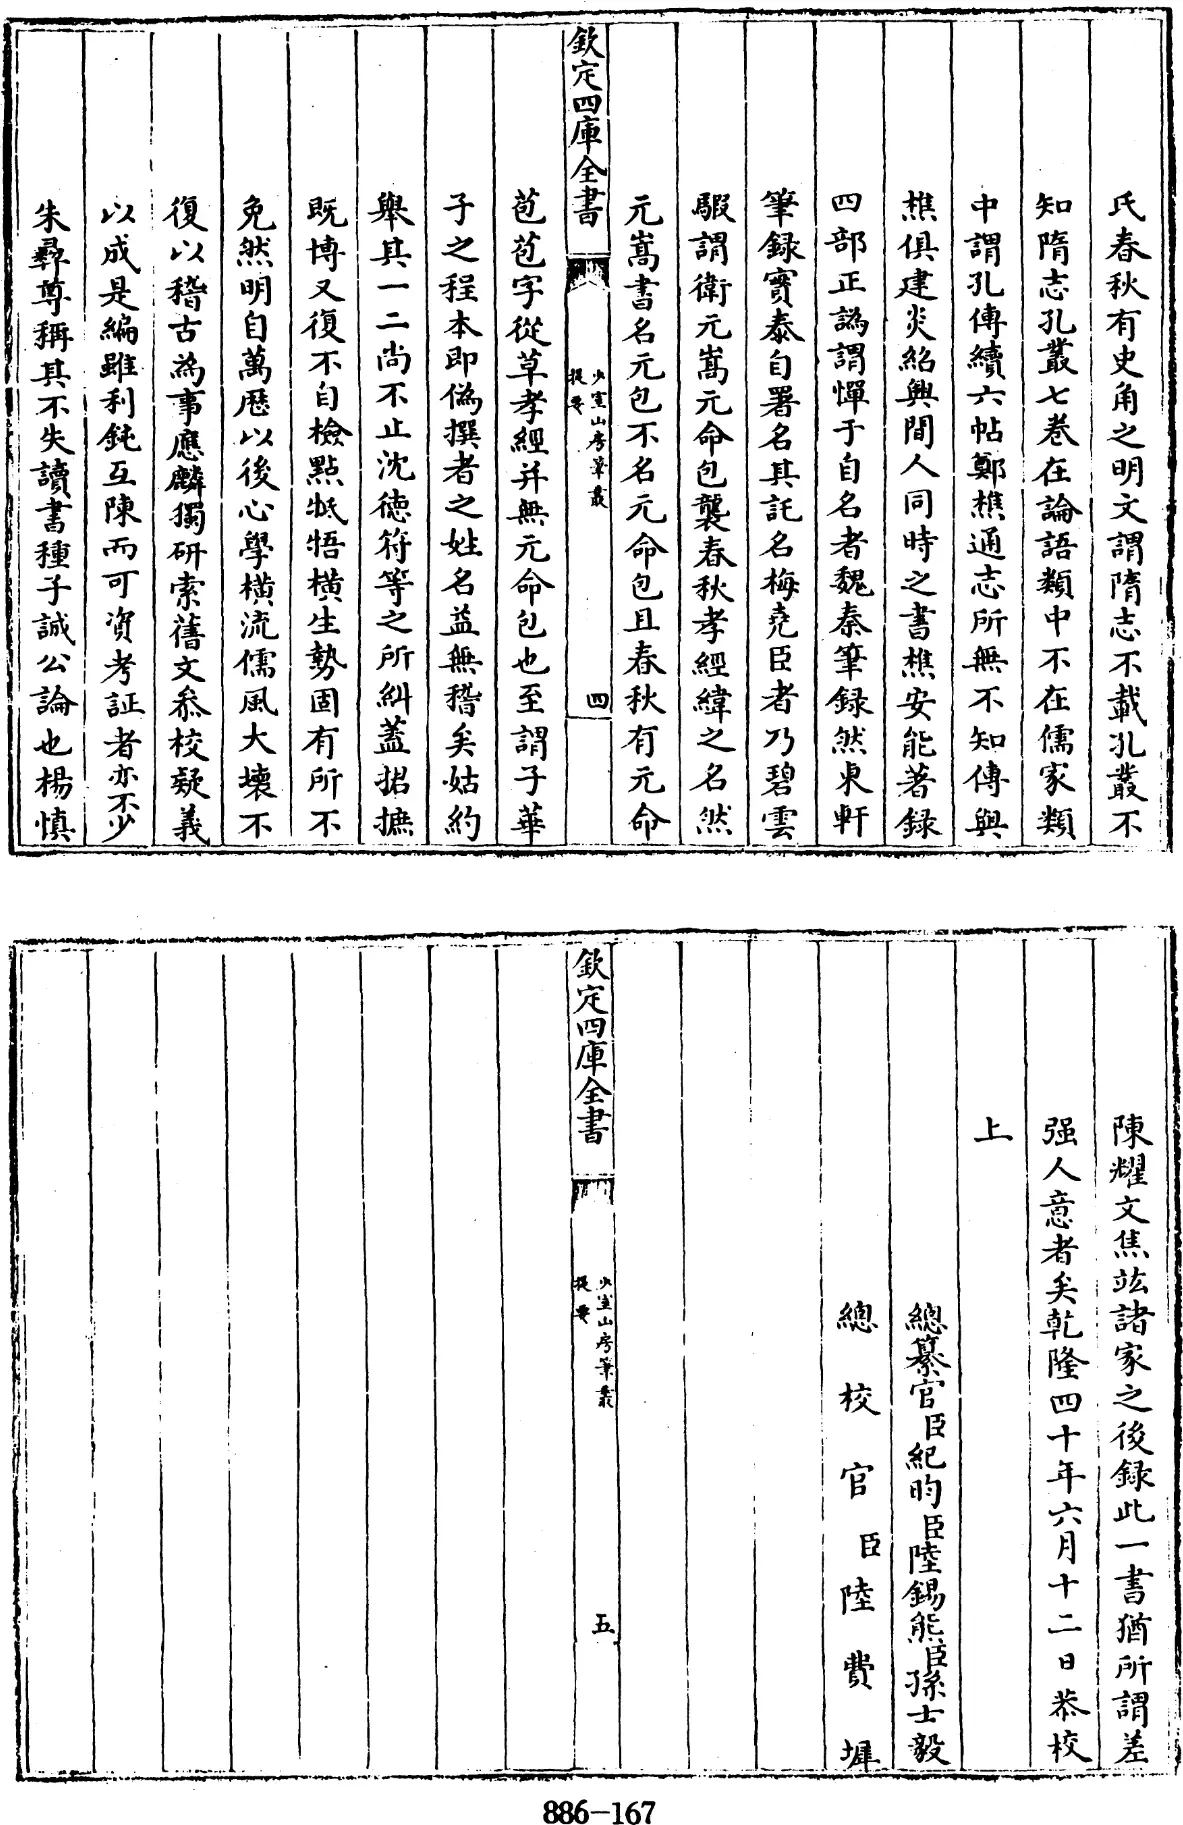 氏春秋有史角之明文謂隋志不載孔叢不
知隋志孔叢七卷在論語類中不在儒家類
中謂孔傳續六帖鄭樵通志所無不知傳與
樵俱建炎紹興間人同時之書樵安能著録
四部正譌謂憚于自名者魏泰筆録然東軒
筆録實泰自署名其託名梅堯臣者乃碧雲
騢謂衛元嵩元命包襲春秋孝經緯之名然
元嵩書名元包不名元命包且春秋有元命
欽定四庫全書
少室山房筆叢
提要
四
苞苞字從草孝經并無元命包也至謂子華
子之程本即偽撰者之姓名益無稽矣姑約
舉其一二尚不止沈德符等之所糾蓋捃摭
既博又復不自檢點牴牾橫生勢固有所不
免然明自萬歷以後心學横流儒風大壞不
復以稽古為事應麟獨研索舊文參校疑義
以成是編雖利鈍互陳而可資考証者亦不少
朱彞尊稱其不失讀書種子誠公論也楊慎
陳耀文焦竑諸家之後録此一書猶所謂差
强人意者矣乾隆四十年六月十二日恭校
上
總纂官臣紀昀臣陸錫熊臣孫士毅
總校官臣陸費墀
欽定四庫全書
少室山房筆叢
提要
五
886-167